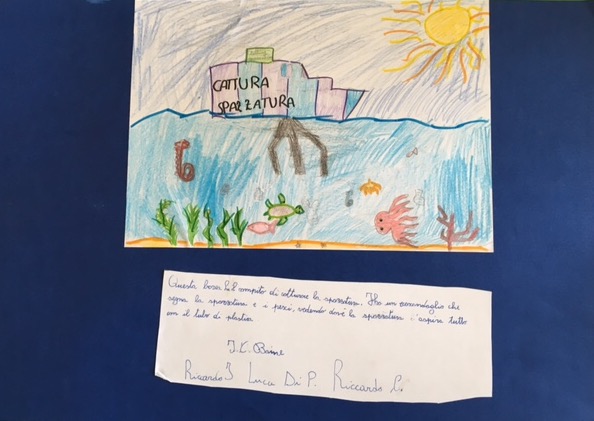 CATTURA
SPAZZATURA
Questa barca ha il compito di catturare la spazzatura. Ha un scandaglio che
segna la spazzatura e i pesci, vedendo dov'è la spazzatura aspira tutto
con il tubo di plastica.
Riccardo J Luca Di P. Riccardo L.